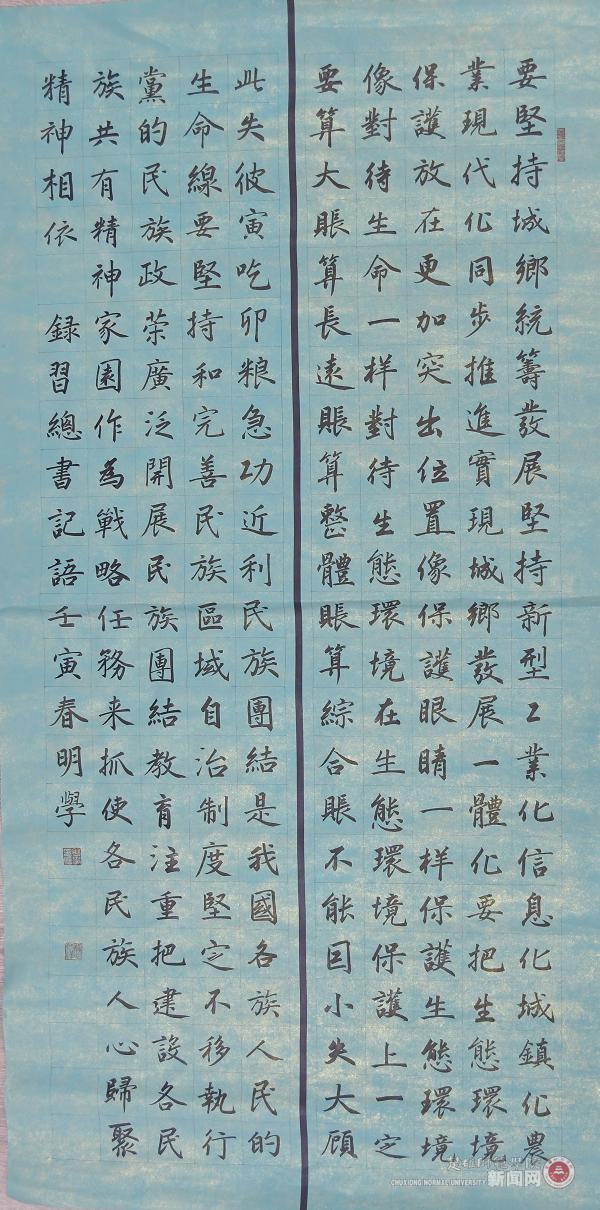 要堅持城鄉統籌發展堅持新型工業化信息化城鎮化農
業現代化同步推進實現城鄉發展一體化要把生態環境
保護放在更加突出位置像保護眼睛一样保護生態環境
像對待生命一样對待生態環境在生態環境保護上一定
要算大賬算長遠賬算整體賬算綜合賬不能因小失大顧
此失彼寅吃卯粮急功近利民族團結是我國各族人民的
生命線要堅持和完善民族區域自治制度堅定不移執行
黨的民族政策廣泛開展民族團結教育注重把建設各民
族共有精神家園作為戰略任務來抓使各民族人心歸聚
精神相依 録習總書記語壬寅春明學
楚雄師範學院
CHUXIONG NORMAL UNIVERSITY 新闻网